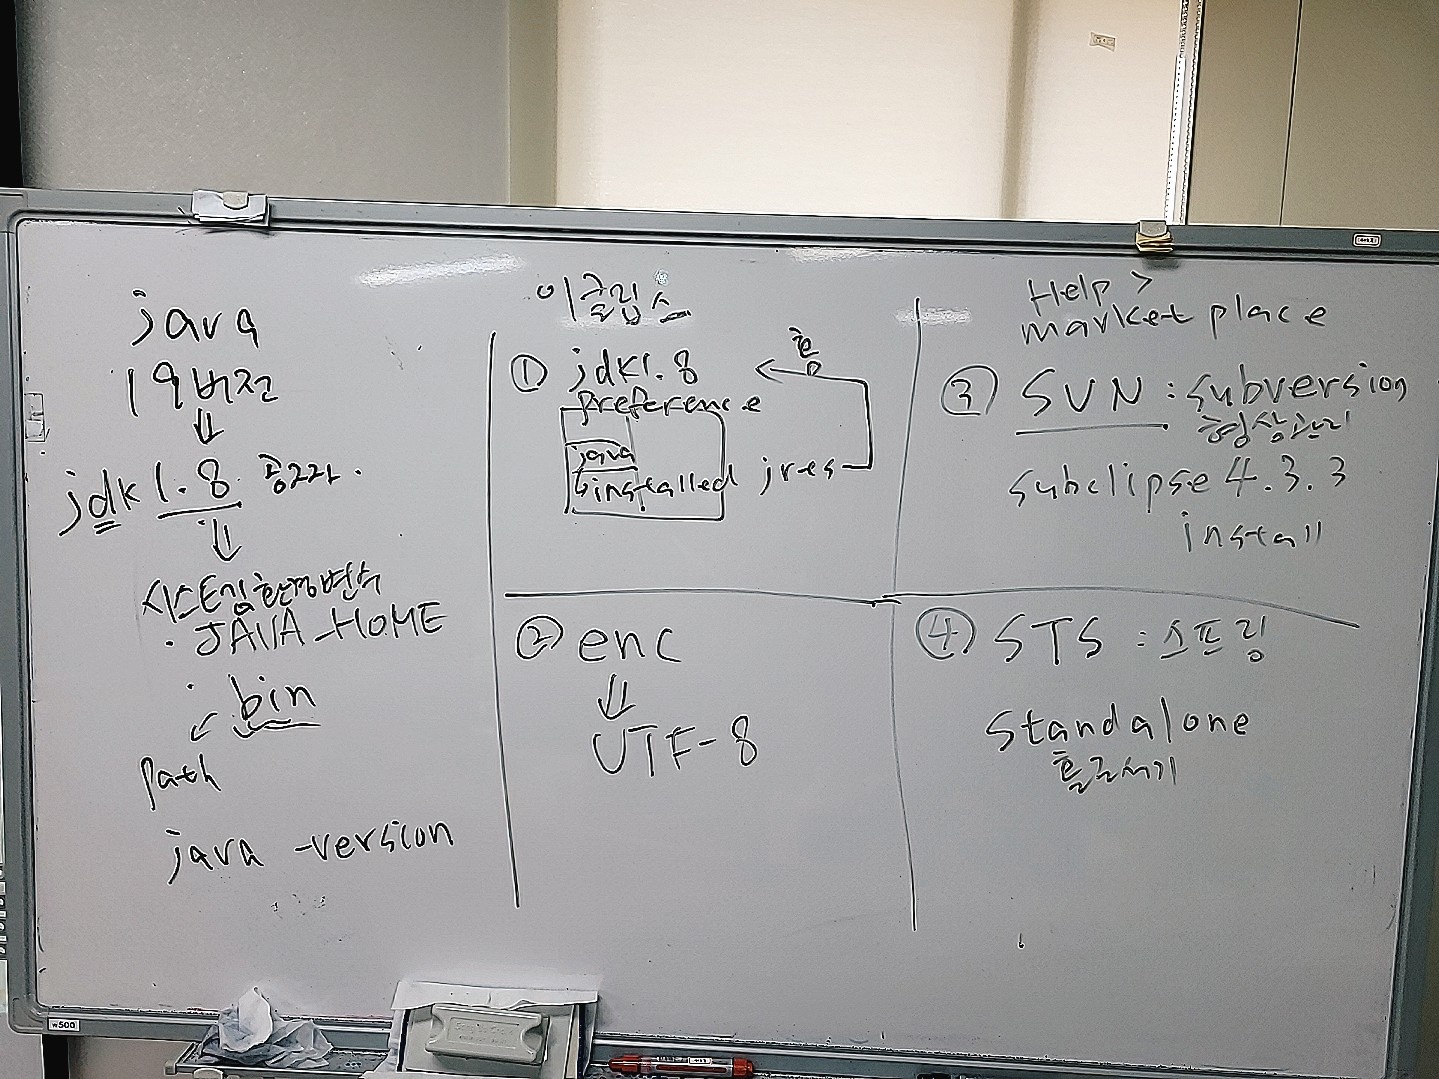 java
19버전
⇓
jdk 1.8 공짜.
⇓
시스템환경변수
· JAVA_HOME
· bin
path
java -version
이클립스
① jdk1.8
preference
java
installed jres
홈
② enc
⇓
UTF-8
Help >
market place
③ SVN : subversion
형상관리
subclipse 4.3.3
install
④ STS : 스프링
Standalone
홀로서기
W500